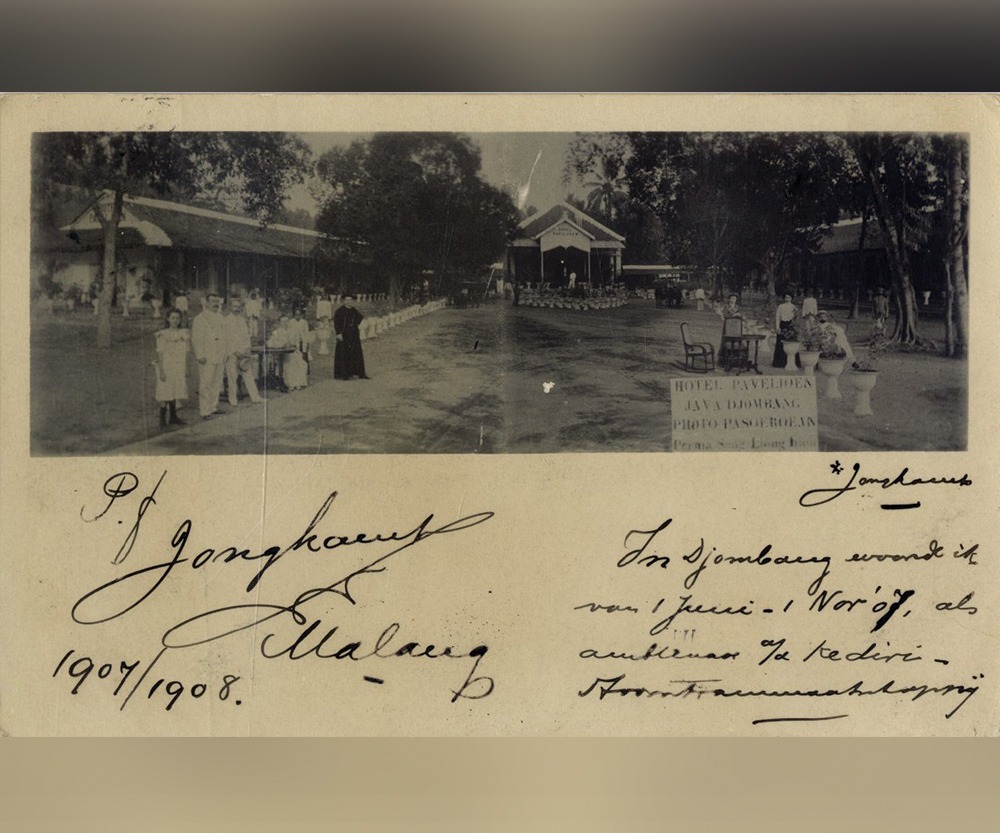 HOTEL PAVELIOEN
JAVA DJOMBANG
PHOTO PASOEROEAN
Perma Sing Liong
* Jonghaus
P. J Jonghaus
Malang
1907/1908.
In Djombang woonde ik
van 1 Juni - 1 Nov '07, als
ambtenaar a/d Kediri-
Stoomtrammaatschappij